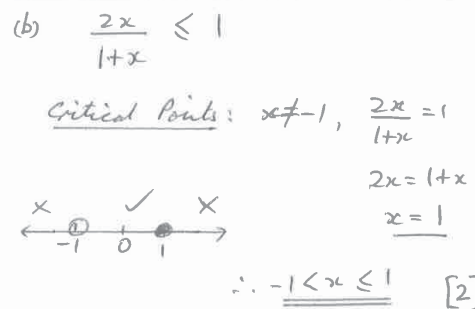 (b) 2x/1+x ≤ 1
Critical Points: x≠-1, 2x/1+x = 1
2x = 1+x
x = 1
× ✓ ×
-1 0 1
∴ -1 < x ≤ 1 [2]